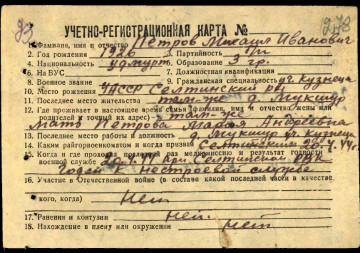 УЧЕТНО-РЕГИСТРАЦИОННАЯ КАРТА №
1. Фамилия, имя и отчество Петров Михаил Иванович
2. Год рождения 1926 3. Партийность б/п
4. Национальность удмурт. 5. Образование 3 гр.
6. На ВУС 7. Должностная квалификация
8. Военное звание 9. Гражданская специальность уч. кузнеца
10. Место рождения УАССР Селтинский р-н
11. Последнее место жительства там-же д. Мукшур
12. Где проживает в настоящее время семья (фамилия, имя и отчество жены или
родителей и точный их адрес) там-же
Мать Петрова Мария Андреевна
13. Последнее место работы и должность Мукшур уч. кузнец
14. Каким райгорвоенкоматом и когда призван Селтинский 20.7.44 г.
15. Когда и где проходил медкомиссию и результат годности
военной службе при Селтинском РВК
годен к нестроевой службе
16. Участие в Отечественной войне (в составе какой последней части и в качестве
кого, когда) Нет
17. Ранения и контузии Нет.
18. Нахождение в плену или окружении Нет